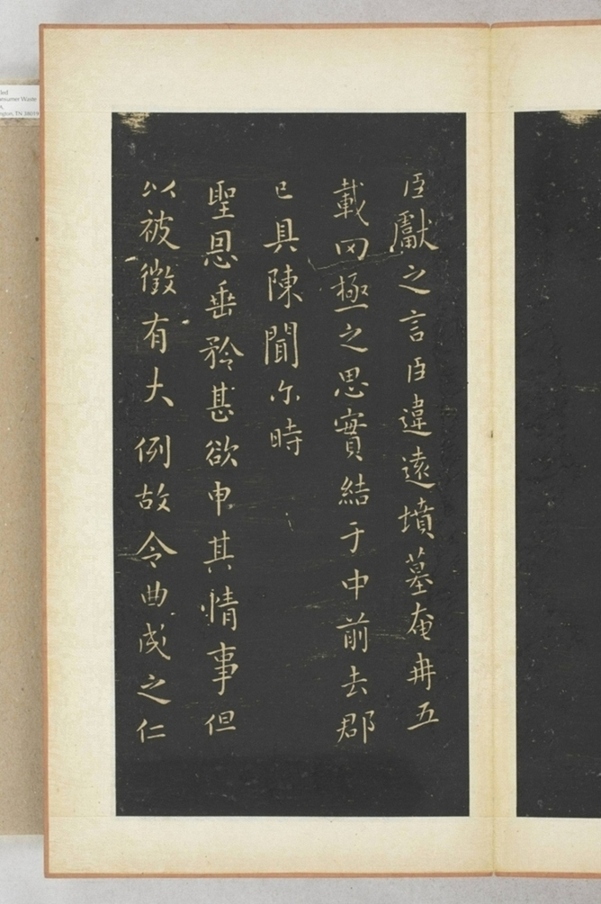 臣獻之言臣違遠墳墓奄冉五
載罔極之思實結于中前去郡
已具陳聞尒時
聖恩垂矜甚欲申其情事但
以被徵有大例故令曲成之仁